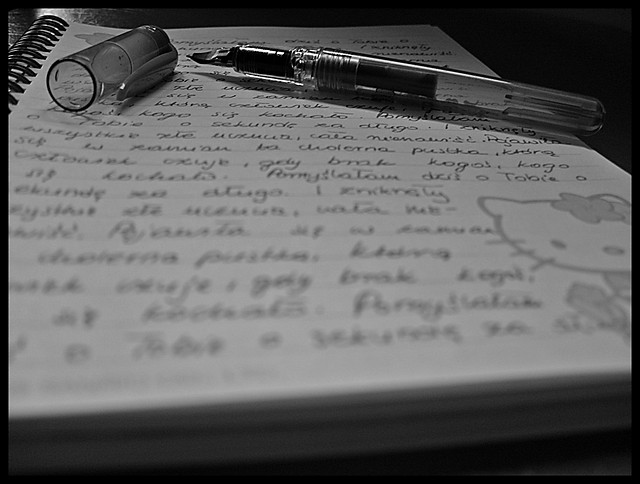 Pomyślałam dziś o Tobie o
i zniknęły
nienawiść.
którą człowiek
kogo się kochało. Pomyślałam
o Tobie o sekundę za długo. I zniknęły
wszystkie złe uczucia, cała nienawiść. Pojawiła
się w zamian ta cholerna pustka, którą
człowiek czuje, gdy brak kogoś, kogo
się kochało. Pomyślałam dziś o Tobie o
sekundę za długo. I zniknęły
wszystkie złe uczucia, cała nie-
wiść. Pojawiła się w zamian
cholerna pustka, którą
człowiek czuje, gdy brak kogoś,
się kochało. Pomyślałam
o Tobie o sekundę za